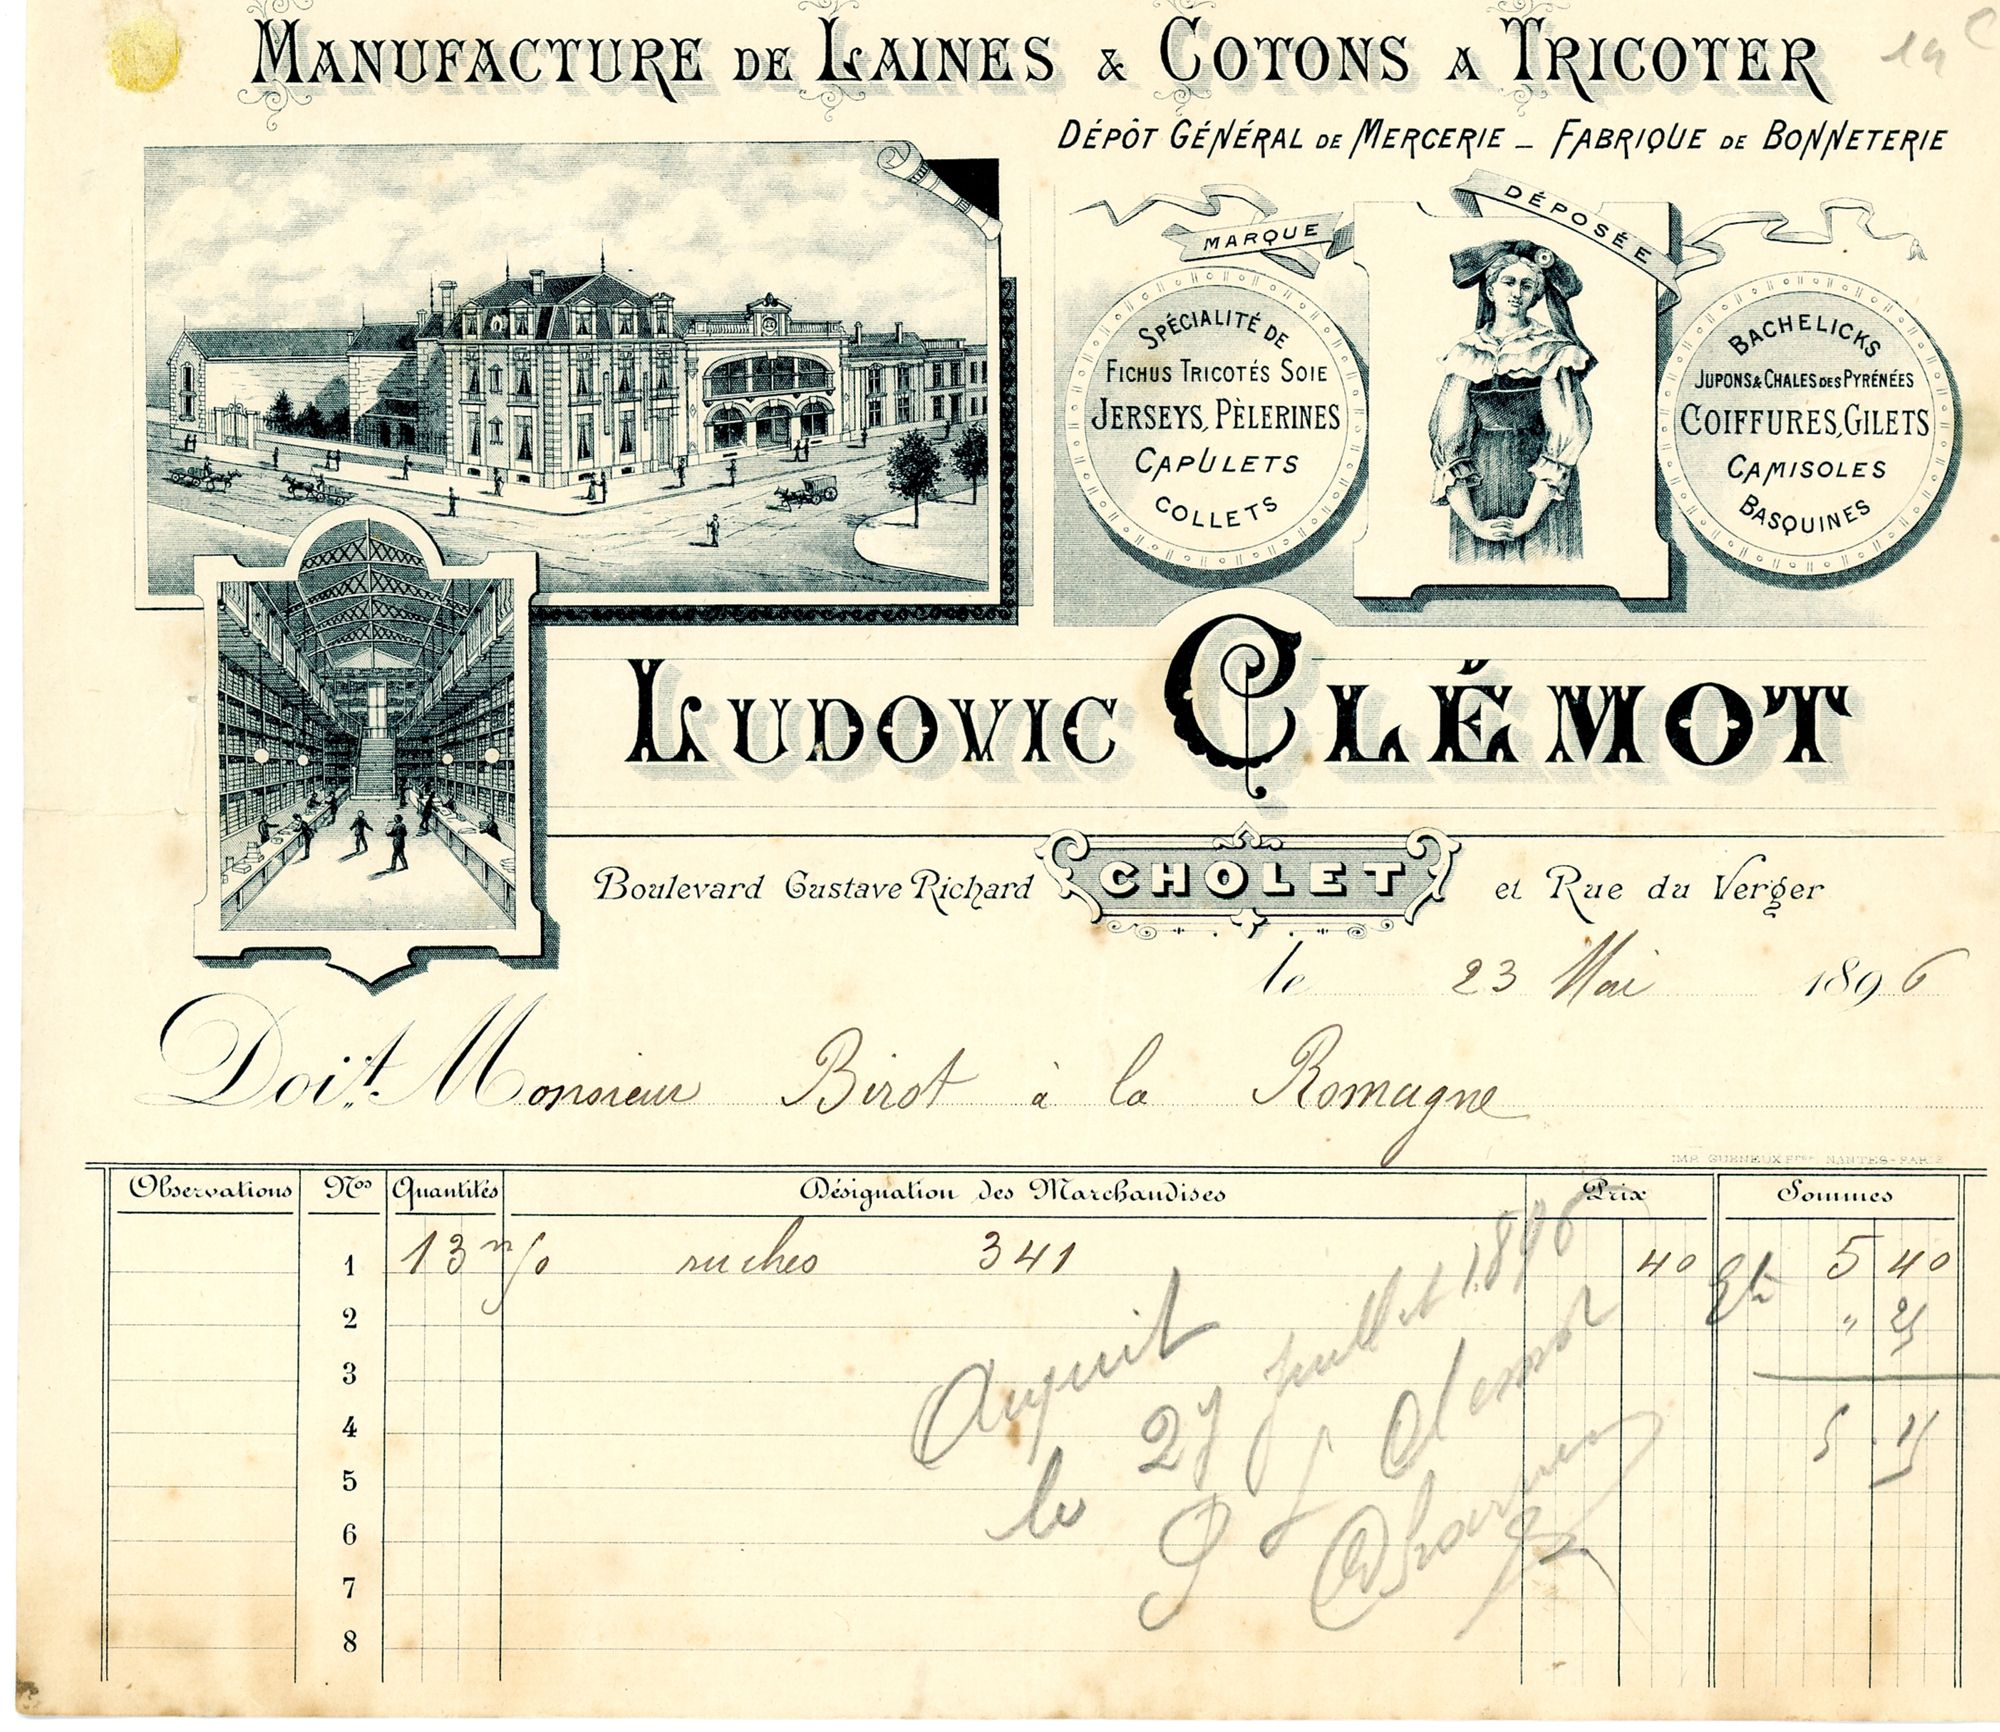 MANUFACTURE DE LAINES & COTONS A TRICOTER
DÉPÔT GÉNÉRAL DE MERCERIE _ FABRIQUE DE BONNETERIE
MARQUE DÉPOSÉE
SPÉCIALITÉ DE
FICHUS TRICOTÉS SOIE
JERSEYS, PÈLERINES
CAPULETS
COLLETS
BACHELICKS
JUPONS & CHALES DES PYRÉNÉES
COIFFURES, GILETS
CAMISOLES
BASQUINES
LUDOVIC CLÉMOT
Boulevard Gustave Richard CHOLET et Rue du Verger
le 23 Mai 1896
Doit Monsieur Birot à la Romagne
IMP. GUENEUX Fres NANTES-PARIS
Observations Nos Quantités Désignation des Marchandises Prix Sommes
1 13 ruches 341 40 5 40
2 "
3
4 5
5
6
7
8
Acquit
le 27 juillet 1896
Clemot